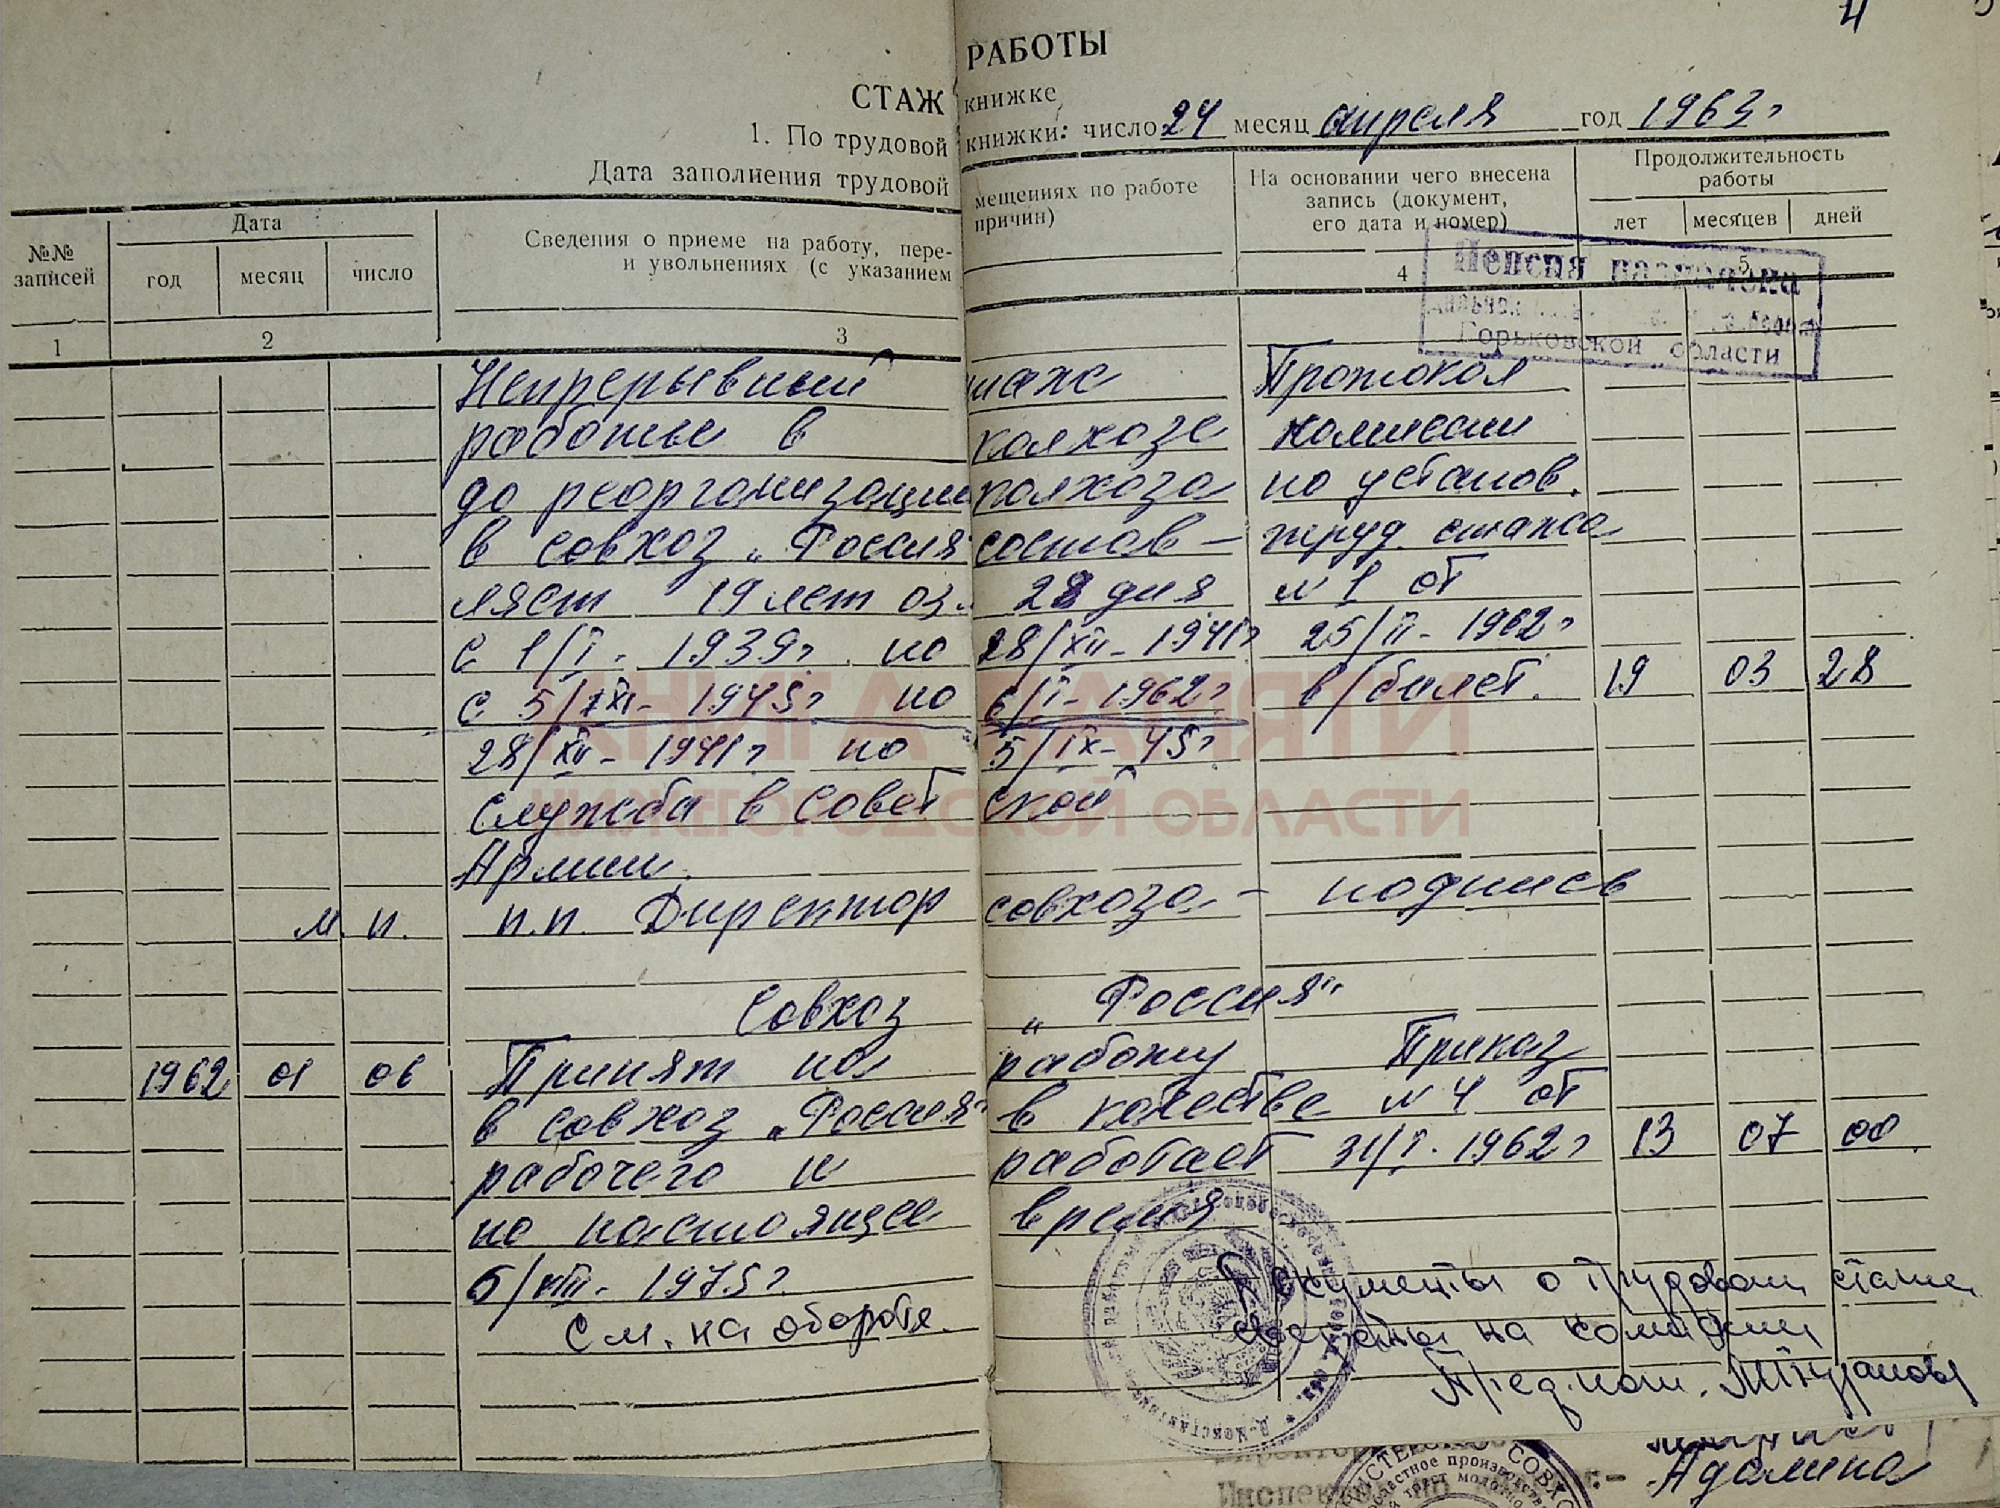 4
СТАЖ РАБОТЫ
1. По трудовой книжке
Дата заполнения трудовой книжки: число 24 месяц апреля год 1963 г
№№ записей
Дата
год месяц число
Сведения о приеме на работу, перемещениях по работе
и увольнениях (с указанием причин)
На основании чего внесена
запись (документ,
его дата и номер)
Продолжительность
работы
лет месяцев дней
1 2 3 4 5
Пенсия назначена
Горьковской области
Непрерывный стаж Протокол
работы в колхозе комиссии
до реорганизации колхоза по установ.
в совхоз „Россия" состав- труд. стажа
ляет 19 лет 03 м. 28 дня № 1 от
с 1/I. 1939г. по 28/XII-1941г 25/II-1962г
с 5/IX-1945г по 6/I-1962г. в/билет. 19 03 28
28/XII-1941г по 5/IX-45г
служба в Совет ской
Армии.
м.п. п.п. Директор совхоза - подпись
Совхоз „Россия"
1962 01 06 Принят на работу Приказ
в совхоз „Россия" в качестве № 4 от
рабочего и работает 31/I. 1962г 13 07 00
по настоящее время
6/VIII- 1975г.
См. на обороте.
Документы о трудовом стаже
на комиссии
Пред. ком.
КНИГА ПАМЯТИ
НИЖЕГОРОДСКОЙ ОБЛАСТИ
Адамина